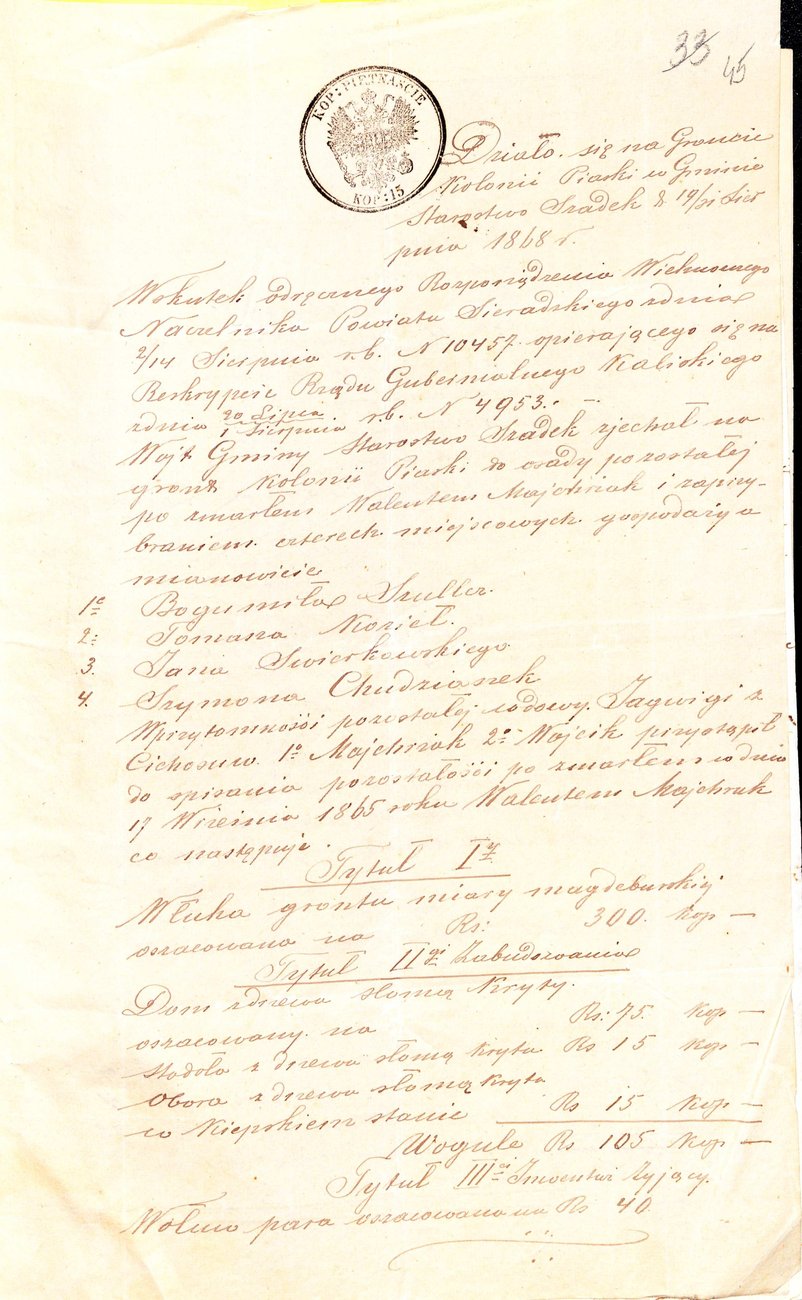 33
45
KOP: PIĘTNAŚCIE
KOP: 15
Działo się na Gruncie
Kolonii Piaski w Gminie
Starostwo Szadek d 19/31 Sier
pnia 1868 r.
Wskutek odręcznego Rozporządzenia Wielmożnego
Naczelnika Powiatu Sieradzkiego zdnia
2/14 Sierpnia r.b. N 10457. opierającego się na
Reskrypcie Rządu Gubernialnego Kaliskiego
zdnia 20 Lipca / 1 Sierpnia r.b. N 4953. –
Wójt Gminy Starostwo Szadek zjechał na
gront Kolonii Piaski do osady pozostałej
po zmarłem Walentem Majchrzak i zaprzy-
braniem czterech miejscowych gospodarzy a
mianowicie
1e Bogumiła Szuller.
2: Tomasza Kozieł.
3. Jana Swierkowskiego
4. Szymona Chudzianek
Wprzytomności pozostałej wdowy Jagwigi z
Cichoszów 1o Majchrzak 2o Wojcik przystąpił
do spisania pozostałości po zmarłem w dniu
17 Wrzesnia 1865 roku Walentem Majchrzak
co następuje.
Tytuł Iy
Włuka grontu miary magdeburskiej
oszacowana na Rs: 300. kop —
Tytuł IIgi Zabudowania
Dom zdrzewa słomą kryty.
oszacowany na Rs: 75. kop —
Stodoła z drzewa słomą kryta Rs 15 kop —
Obora z drzewa słomą kryta
w kiepskiem stanie Rs 15 kop —
Wogule Rs 105 kop —
Tytuł IIIci Inwentarz żyjący.
Wołuw para oszacowana na Rs 40.